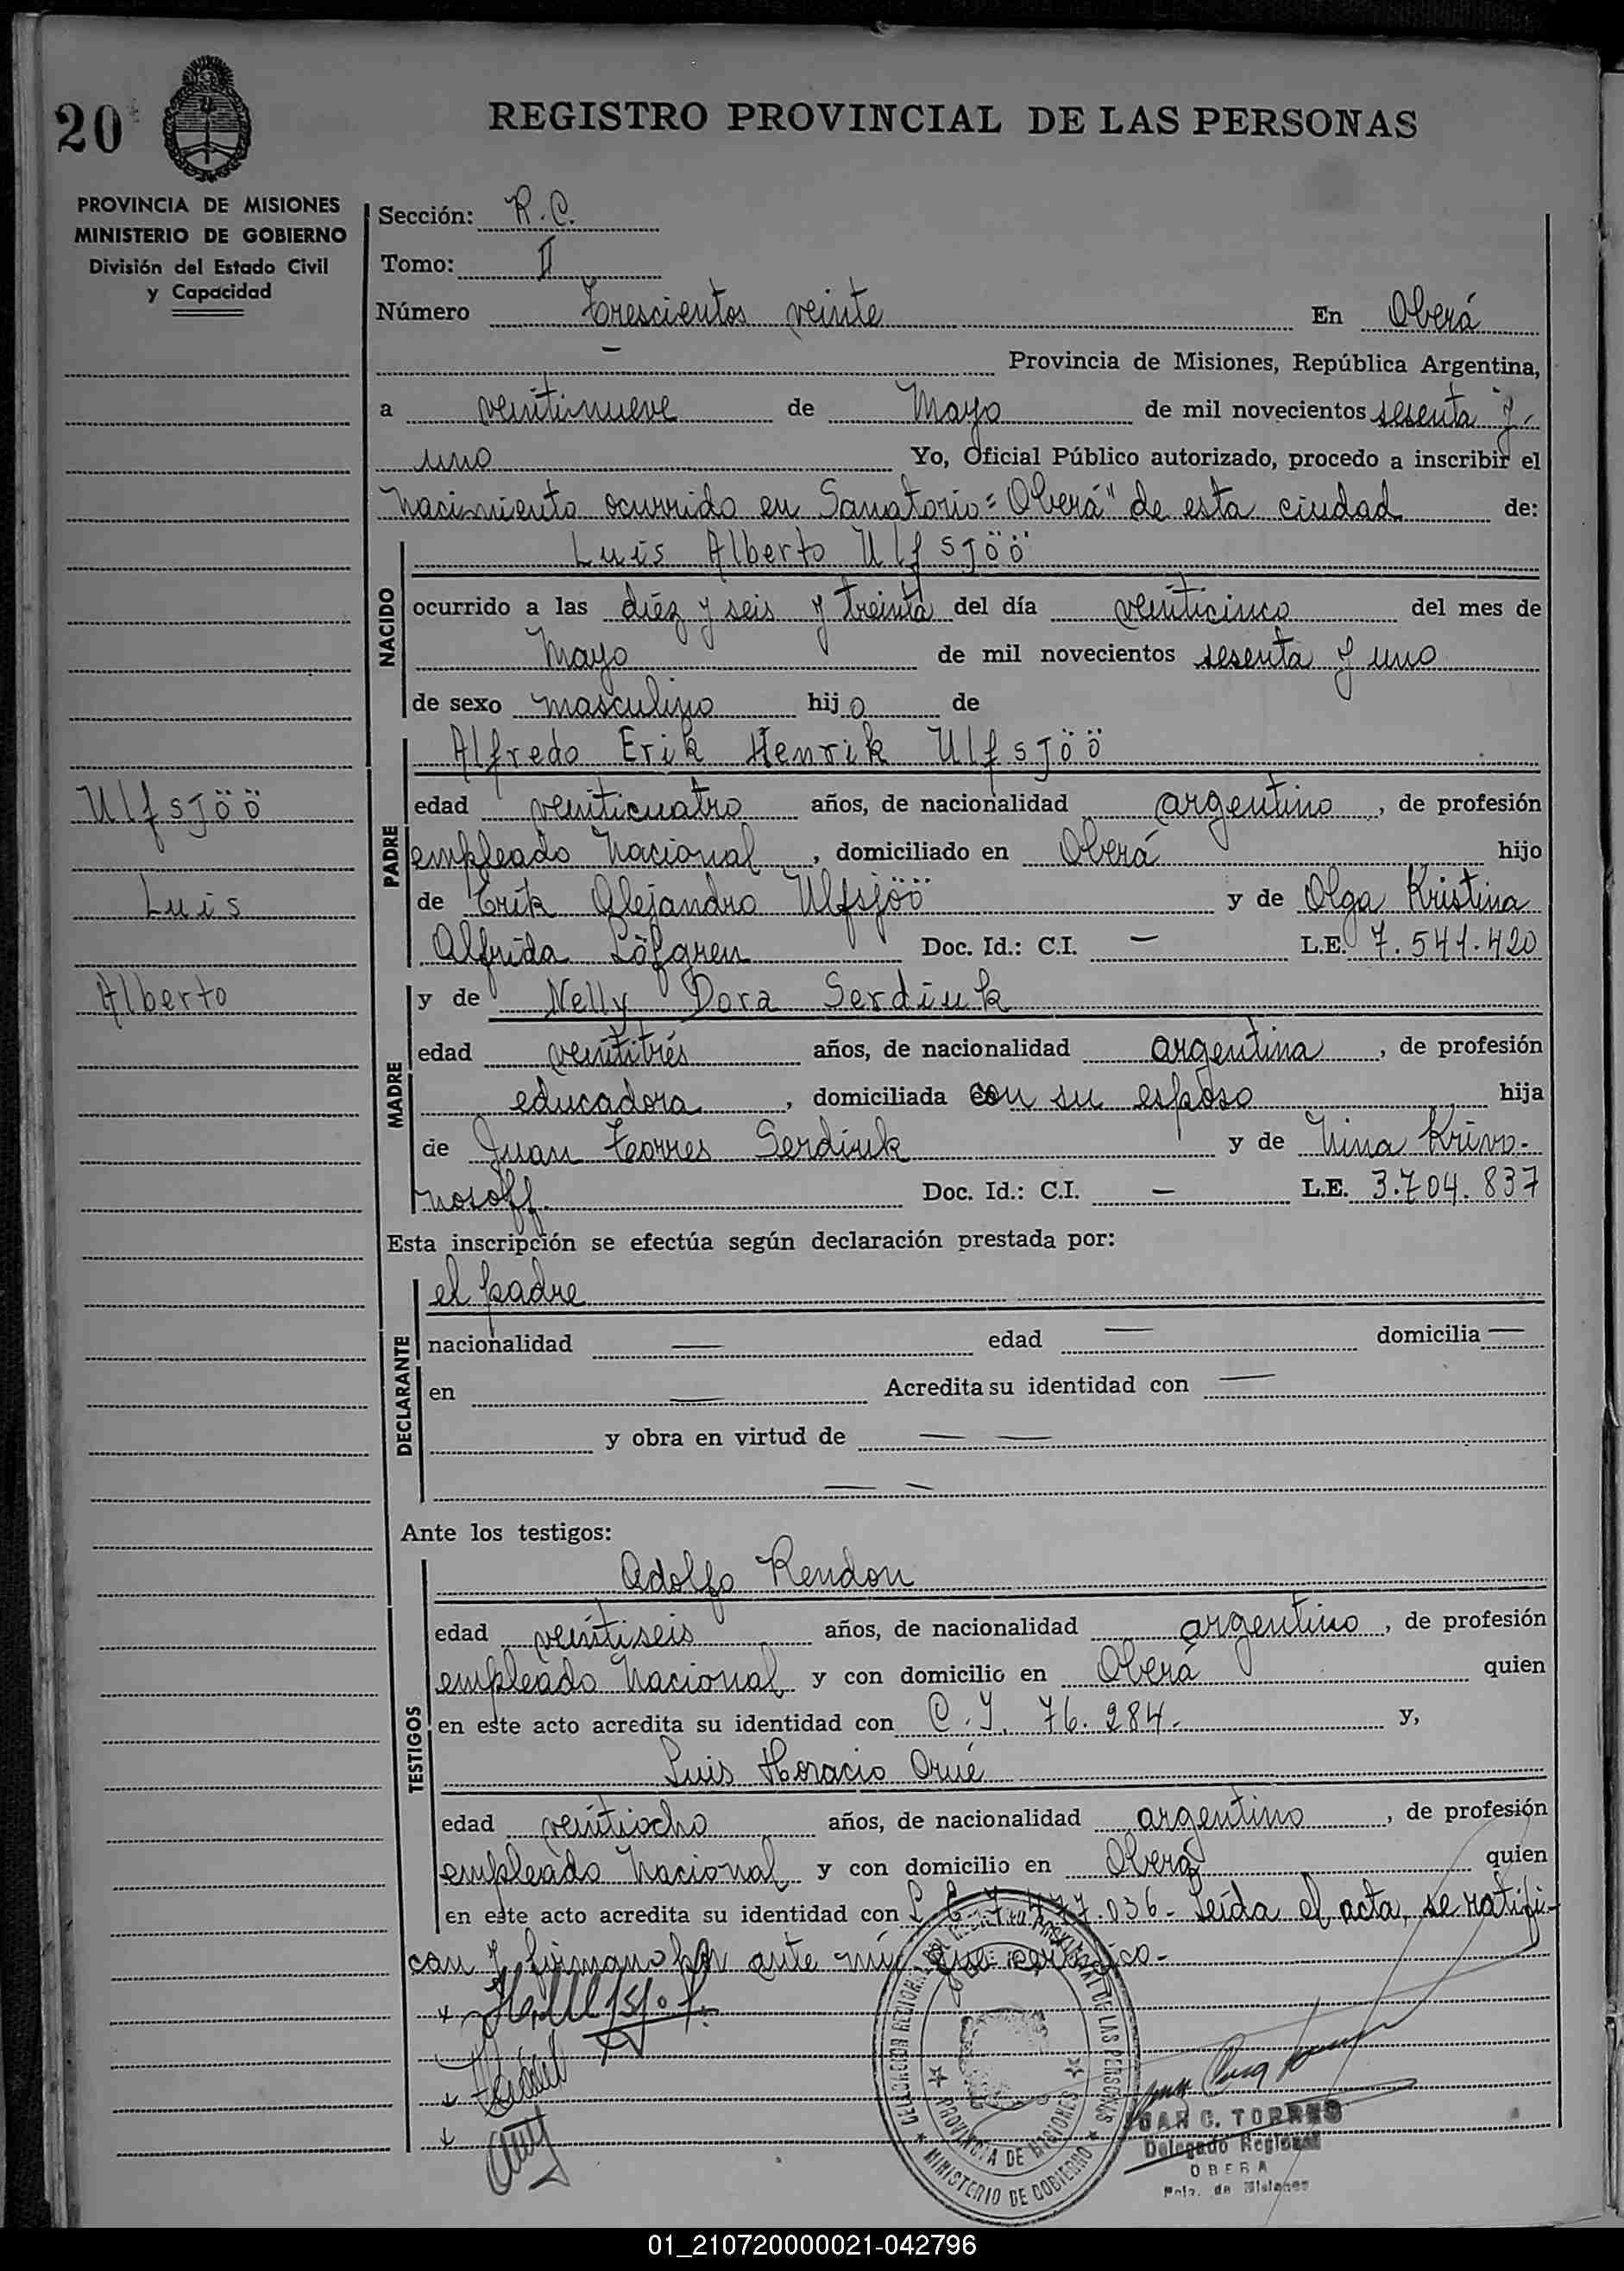 20
REGISTRO PROVINCIAL DE LAS PERSONAS
PROVINCIA DE MISIONES
MINISTERIO DE GOBIERNO
División del Estado Civil
y Capacidad
Sección: R.C.
Tomo: II
Número Trescientos veinte En Oberá
— Provincia de Misiones, República Argentina,
a veintinueve de Mayo de mil novecientos sesenta y
uno Yo, Oficial Público autorizado, procedo a inscribir el
nacimiento ocurrido en Sanatorio "Oberá" de esta ciudad de:
NACIDO
Luis Alberto Ulfsjöö
ocurrido a las diez y seis y treinta del día veinticinco del mes de
Mayo de mil novecientos sesenta y uno
de sexo masculino hijo de
PADRE
Alfredo Erik Henrik Ulfsjöö
edad veinticuatro años, de nacionalidad argentino, de profesión
empleado Nacional, domiciliado en Oberá hijo
de Erik Alejandro Ulfsjöö y de Olga Kristina
Alfrida Löfgren Doc. Id.: C.I. — L.E. 7.541.420
Ulfsjöö
Luis
Alberto
MADRE
y de Nelly Dora Serdiuk
edad veintitrés años, de nacionalidad argentina, de profesión
educadora, domiciliada con su esposo hija
de Juan Torres Serdiuk y de Nina Krivo-
nosoff. Doc. Id.: C.I. — L.E. 3.704.837
Esta inscripción se efectúa según declaración prestada por:
DECLARANTE
el padre
nacionalidad — edad — domicilia —
en — Acredita su identidad con —
y obra en virtud de — —
— —
Ante los testigos:
TESTIGOS
Adolfo Rendon
edad veintiseis años, de nacionalidad argentino, de profesión
empleado Nacional y con domicilio en Oberá quien
en este acto acredita su identidad con C.I. 76.284.- y,
Luis Horacio Orué
edad veintiocho años, de nacionalidad argentino, de profesión
empleado Nacional y con domicilio en Oberá quien
en este acto acredita su identidad con L.E. .036- Leída el acta, se ratifi-
can y firman por ante mí que certifico-
DELEGACION REGIONAL DEL REGISTRO PROVINCIAL DE LAS PERSONAS
PROVINCIA DE MISIONES
MINISTERIO DE GOBIERNO
JUAN C. TORRES
Delegado Regional
OBERA
Pcia. de Misiones
01_210720000021-042796